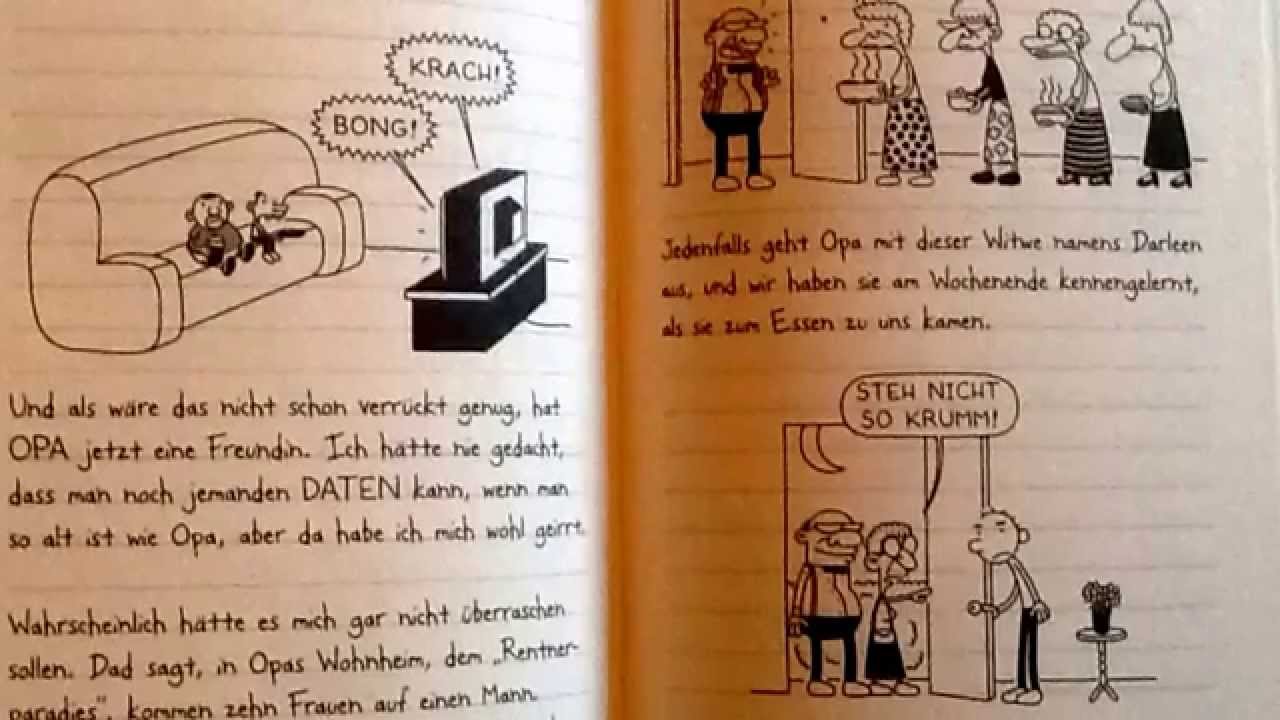 KRACH!
BONG!
Und als wäre das nicht schon verrückt genug, hat
OPA jetzt eine Freundin. Ich hätte nie gedacht,
dass man noch jemanden DATEN kann, wenn man
so alt ist wie Opa, aber da habe ich mich wohl geirrt.
Wahrscheinlich hätte es mich gar nicht überraschen
sollen. Dad sagt, in Opas Wohnheim, dem „Rentner-
paradies", kommen zehn Frauen auf einen Mann.
Jedenfalls geht Opa mit dieser Witwe namens Darleen
aus, und wir haben sie am Wochenende kennengelernt,
als sie zum Essen zu uns kamen.
STEH NICHT
SO KRUMM!